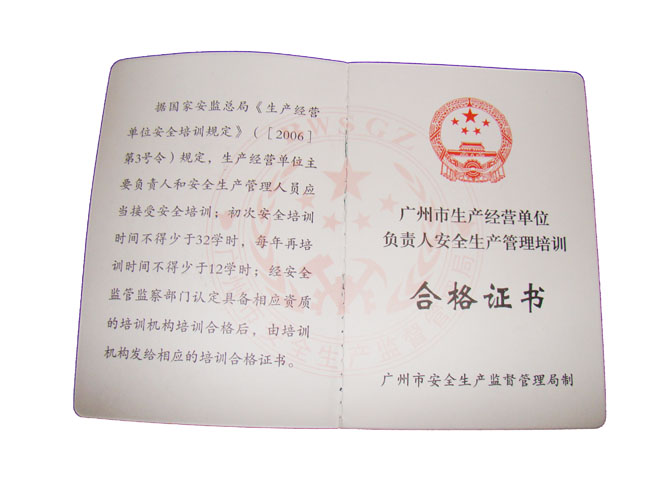 据国家安监总局《生产经营
单位安全培训规定》（［2006］
第3号令）规定，生产经营单位主
要负责人和安全生产管理人员应
当接受安全培训；初次安全培训
时间不得少于32学时，每年再培
训时间不得少于12学时；经安全
监管监察部门认定具备相应资质
的培训机构培训合格后，由培训
机构发给相应的培训合格证书。
PWSGZ
广州市安全生产监督管理局
广州市生产经营单位
负责人安全生产管理培训
合格证书
广州市安全生产监督管理局制